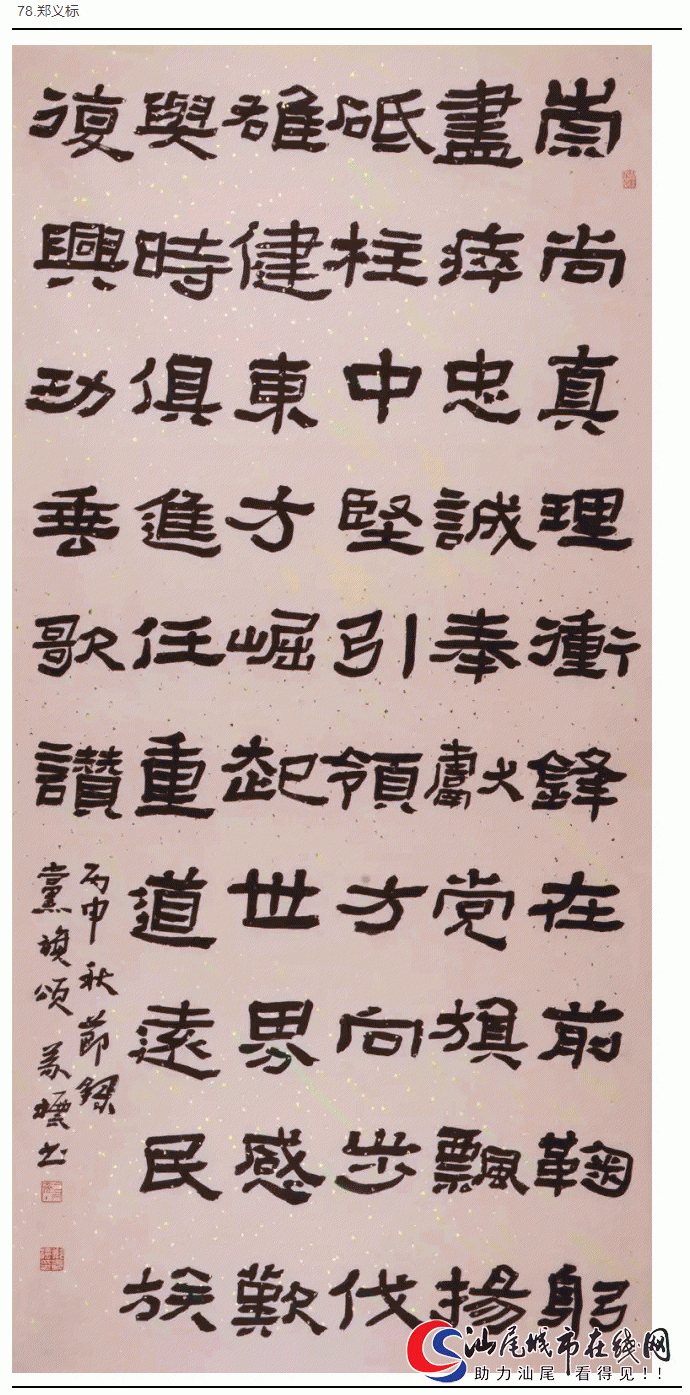 78.郑义标
崇尚真理衝鋒在前鞠躬
盡瘁忠誠奉獻党旗飄揚
砥柱中堅引領方向步伐
雄健東方崛起世界感歎
與時俱進任重道遠民族
復興功垂歌讚
丙申秋節錄
黨旗頌 義標书
汕尾城市在线·网
助力汕尾 看得见!!